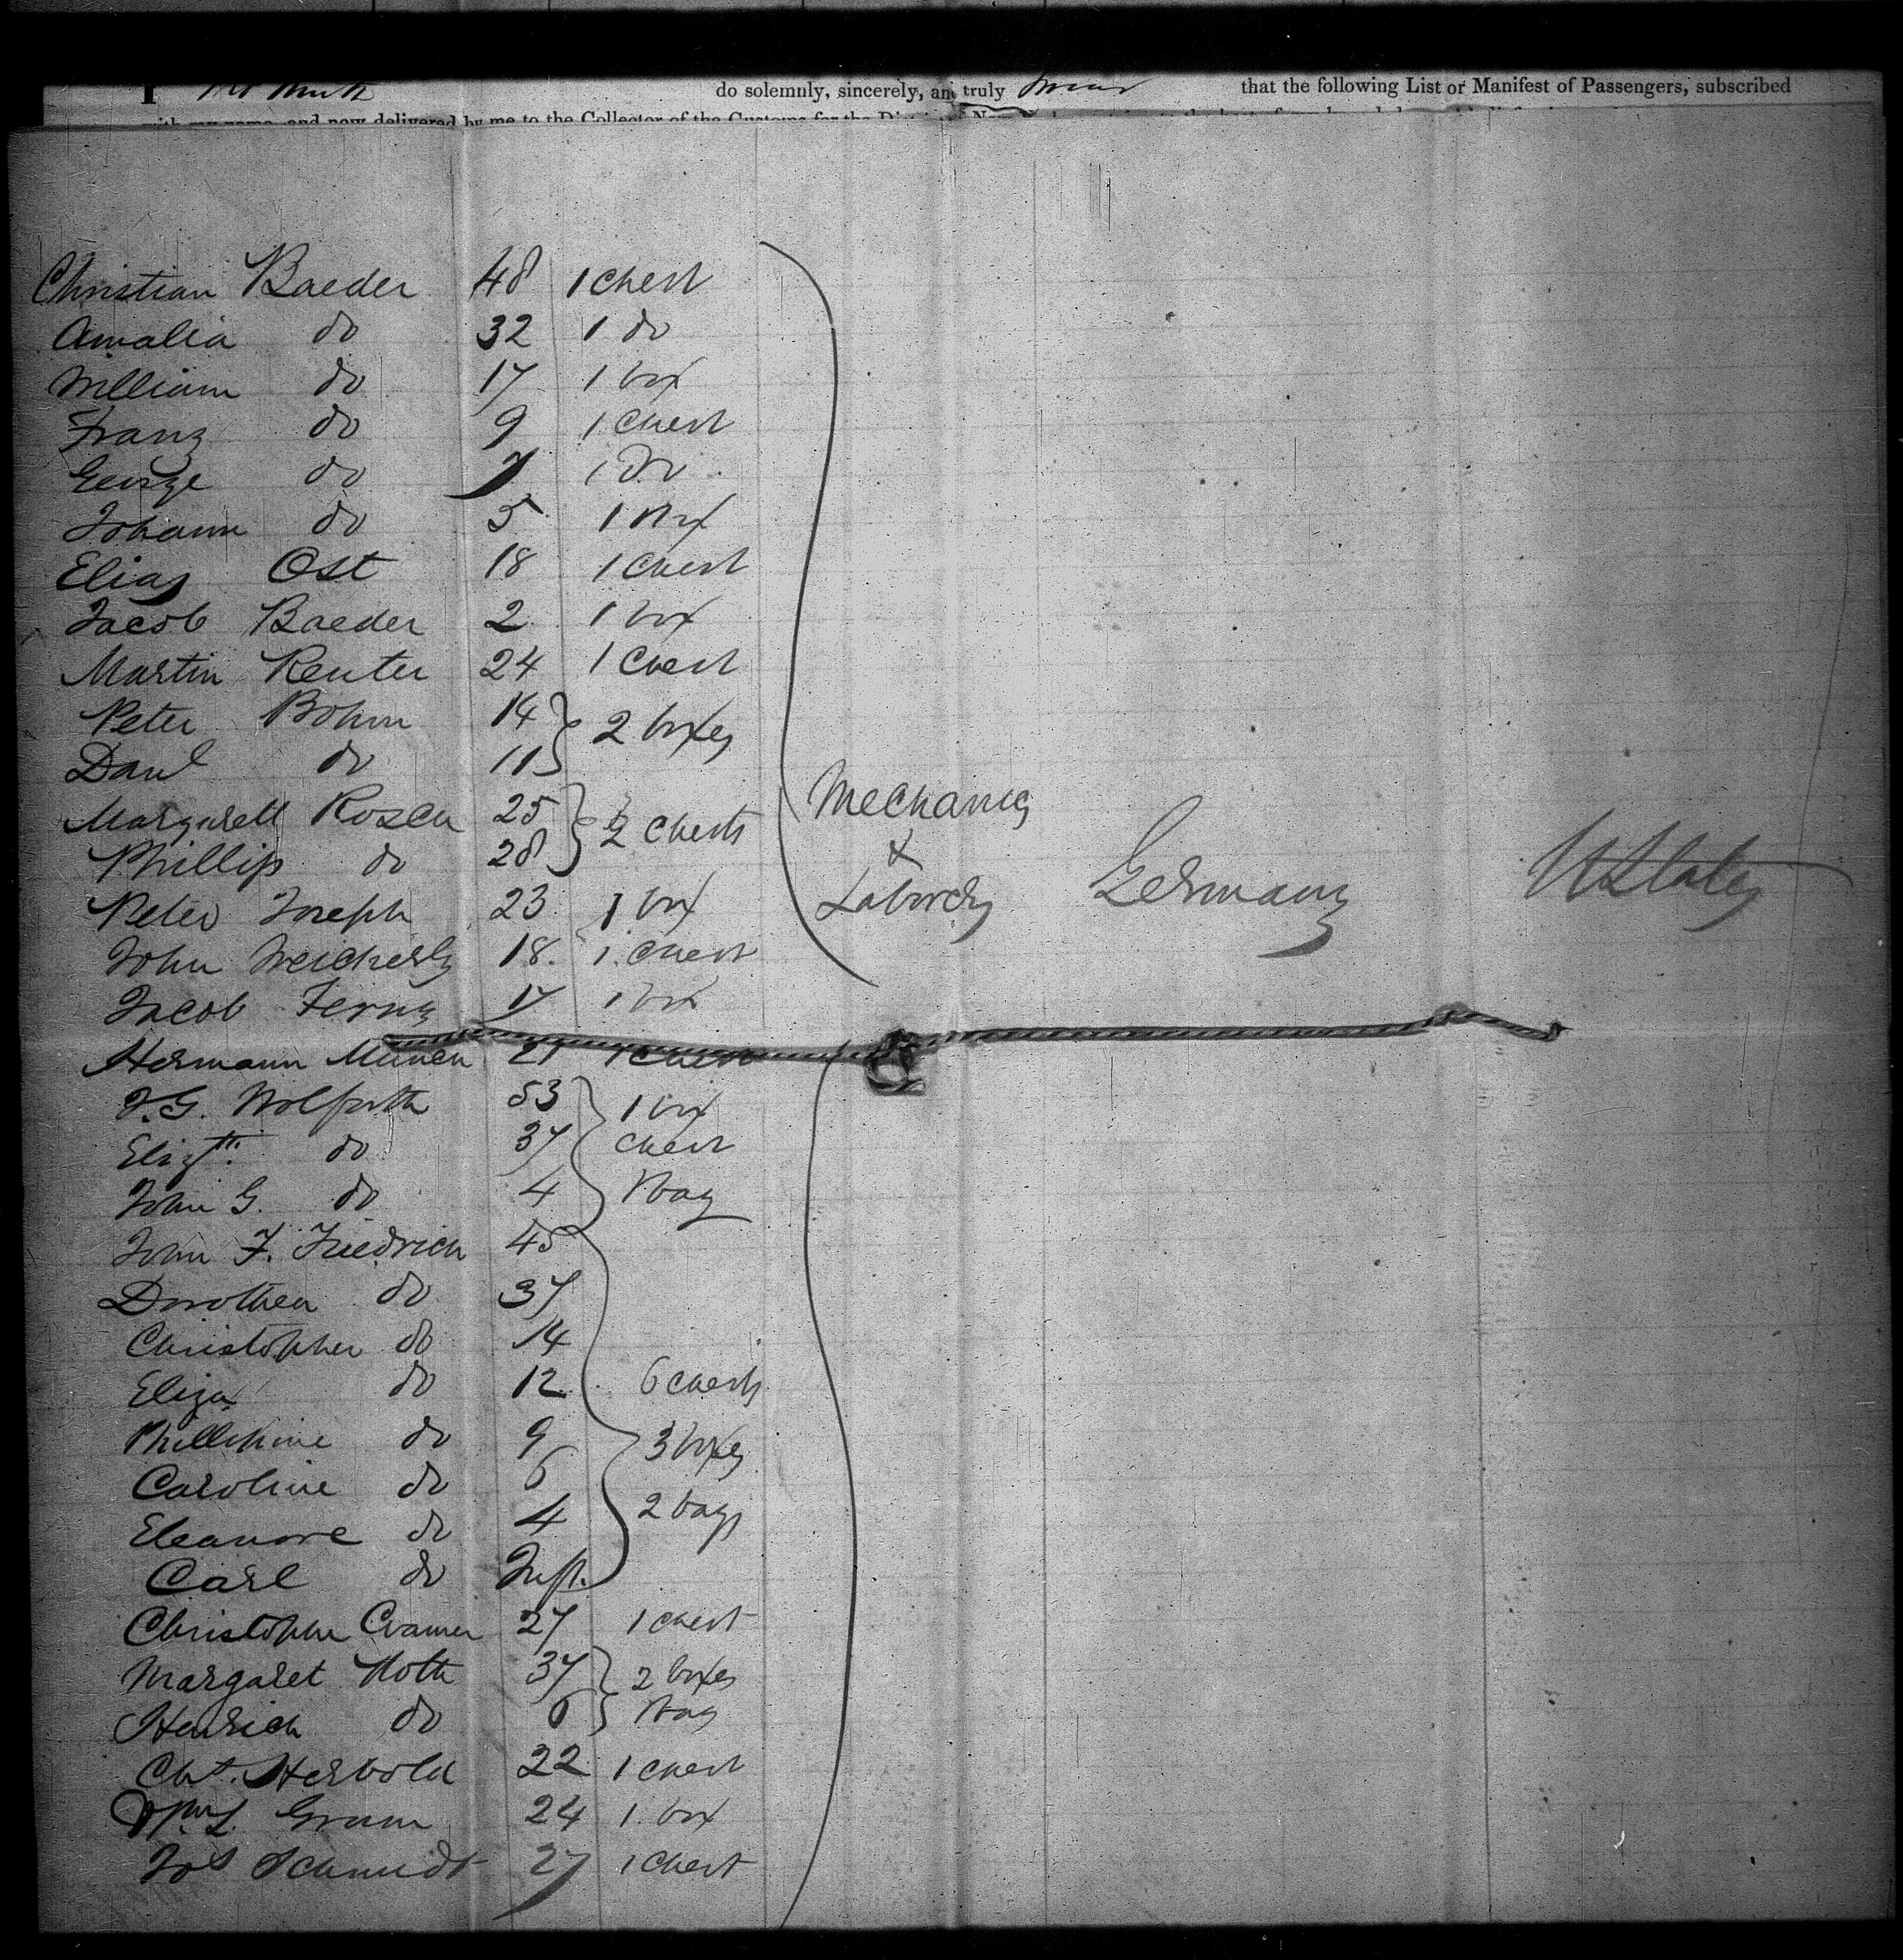 I do solemnly, sincerely, and truly swear that the following List or Manifest of Passengers, subscribed
with my name, and now delivered by me to the Collector of the Customs for the
Christian Baeder 48 1 Chest
Amalia do 32 1 do
William do 17 1 box
Franz do 9 1 Chest
George do 7 1 Do
Johann do 5 1 Box
Elias Ost 18 1 Chest
Jacob Baeder 2 1 box
Martin Reuter 24 1 Chest
Peter Bohm 14 2 boxes
Danl do 11
Margarett Rosch 25 2 Chests
Phillip do 28
Mechanics
&
Laborers
Germany
U States
Peter Joseph 23 1 box
John 18. 1. Chest
Jacob 17 1 box
Hermann 21 1 Chest
J. G. Wolforth 53 1 box
Elizth. do 37 Chest
John G. do 4 1 bag
John F. Friedrich 45
Dorothea do 37
Christopher do 14
Eliza do 12 6 Chests
Phillipine do 9 3 boxes
Caroline do 6
Eleanore do 4 2 bags
Carl do Inft.
Christopher Cramer 27 1 chest
Margaret Noth 37 2 boxes
Henrich do 6 1 bag
Cht. Herbold 22 1 Chest
Wm L. Grum 24 1. box
Jos Schmidt 27 1 Chest